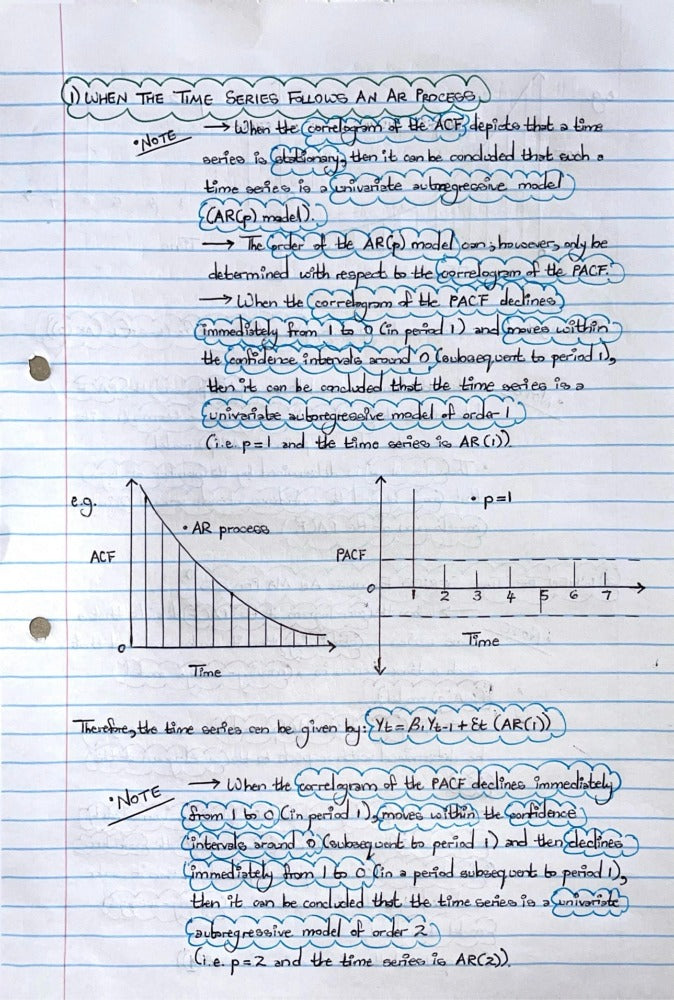 1) WHEN THE TIME SERIES FOLLOWS AN AR PROCESS
• NOTE → When the correlogram of the ACF depicts that a time
series is stationary, then it can be concluded that such a
time series is a univariate autoregressive model
(AR(p) model).
→ The order of the AR(p) model can, however, only be
determined with respect to the correlogram of the PACF.
→ When the correlogram of the PACF declines
immediately from 1 to 0 (in period 1) and moves within
the confidence intervals around 0 (subsequent to period 1),
then it can be concluded that the time series is a
univariate autoregressive model of order 1
(i.e. p=1 and the time series is AR(1)).
e.g.
• AR process
ACF
0
Time
• p=1
PACF
0
1 2 3 4 5 6 7
Time
Therefore, the time series can be given by: Yt = β1Yt-1 + εt (AR(1))
• NOTE → When the correlogram of the PACF declines immediately
from 1 to 0 (in period 1), moves within the confidence
intervals around 0 (subsequent to period 1) and then declines
immediately from 1 to 0 (in a period subsequent to period 1),
then it can be concluded that the time series is a univariate
autoregressive model of order 2
(i.e. p=2 and the time series is AR(2)).